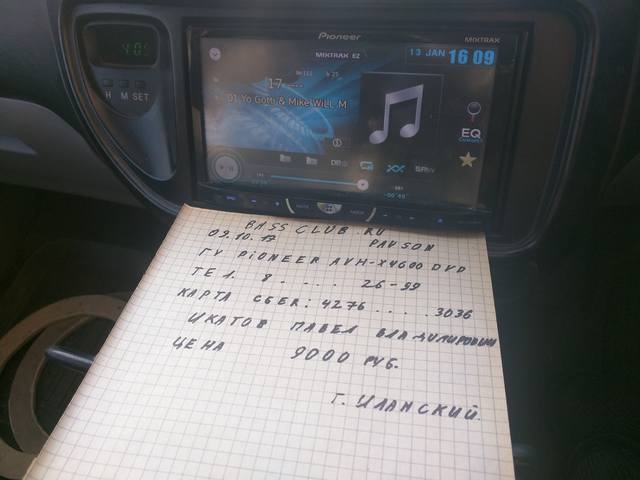 Pioneer
MIXTRAX
MIXTRAX EZ
13 JAN 16 09
17
01 Yo Gotti & Mike WiLL M
EQ
H M SET
BASS CLUB RU
09.10.17 PAVSON
ГУ PIONEER AVH-X4600 DVD
ТЕЛ. 8 . . . . 26-99
КАРТА СБЕР: 4276 . . . . 3036
ИКАТОВ ПАВЕЛ ВЛАДИМИРОВИЧ
ЦЕНА 9000 РУБ.
Г. ИЛАНСКИЙ.